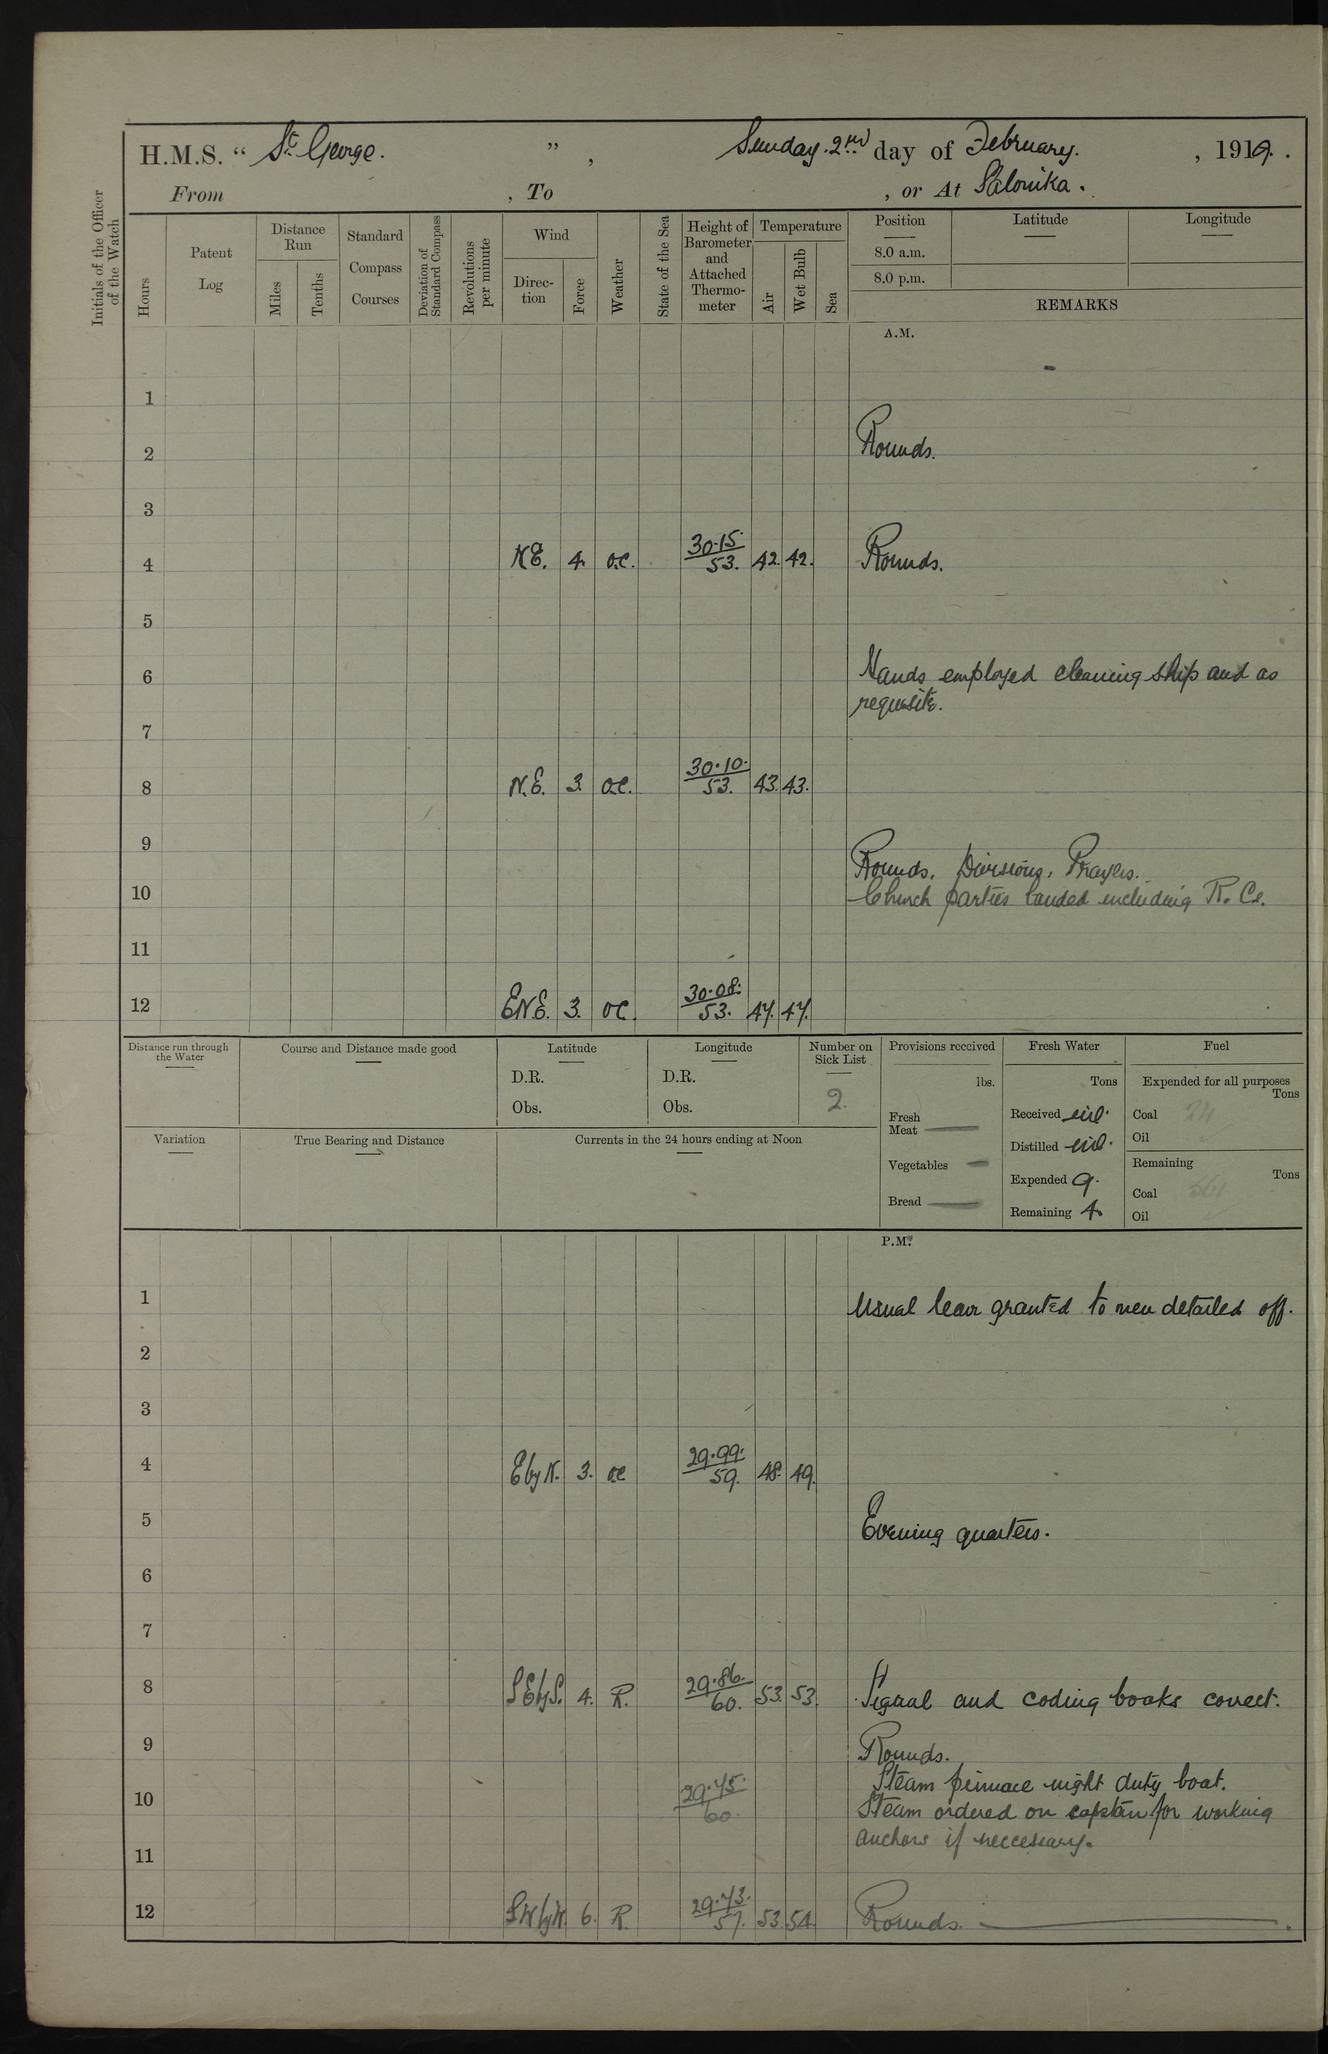 H.M.S. “ St. George. ” , Sunday. 2nd day of February. , 1919. .
From , To , or At Salonika.
Initials of the Officer of the Watch
Hours
Patent Log
Distance Run
Miles
Tenths
Standard Compass Courses
Deviation of Standard Compass
Revolutions per minute
Wind
Direc-tion
Force
Weather
State of the Sea
Height of Barometer and Attached Thermo-meter
Temperature
Air
Wet Bulb
Sea
Position Latitude Longitude
8.0 a.m.
8.0 p.m.
REMARKS
A.M.
1
2 Rounds.
3
4 N.E. 4. o.c. 30.15. 53. 42. 42. Rounds.
5
6 Hands employed cleaning ship and as
requisite.
7
8 N.E. 3. o.c. 30.10. 53. 43. 43.
9 Rounds. Divisions. Prayers.
10 Church parties landed including R. Cs.
11
12 E.N.E. 3. o.c. 30.08. 53. 47. 47.
Distance run through the Water
Course and Distance made good
Latitude
D.R.
Obs.
Longitude
D.R.
Obs.
Number on Sick List
2.
Provisions received
lbs.
Fresh Meat
Vegetables
Bread
Fresh Water
Tons
Received nil.
Distilled nil.
Expended 9.
Remaining 4.
Fuel
Expended for all purposes
Tons
Coal 24
Oil
Remaining
Tons
Coal
Oil
Variation
True Bearing and Distance
Currents in the 24 hours ending at Noon
P.M.
1 Usual leave granted to men detailed off.
2
3
4 E by N. 3. o.c 29.99. 59. 48. 49.
5 Evening quarters.
6
7
8 S E by S. 4. R. 29.86. 60. 53. 53. Signal and coding books correct.
9 Rounds.
Steam pinnace night duty boat.
10 29.75. 60. Steam ordered on capstan for working
anchors if neccessary.
11
12 S W by W. 6. R. 29.73. 57. 53. 54. Rounds.